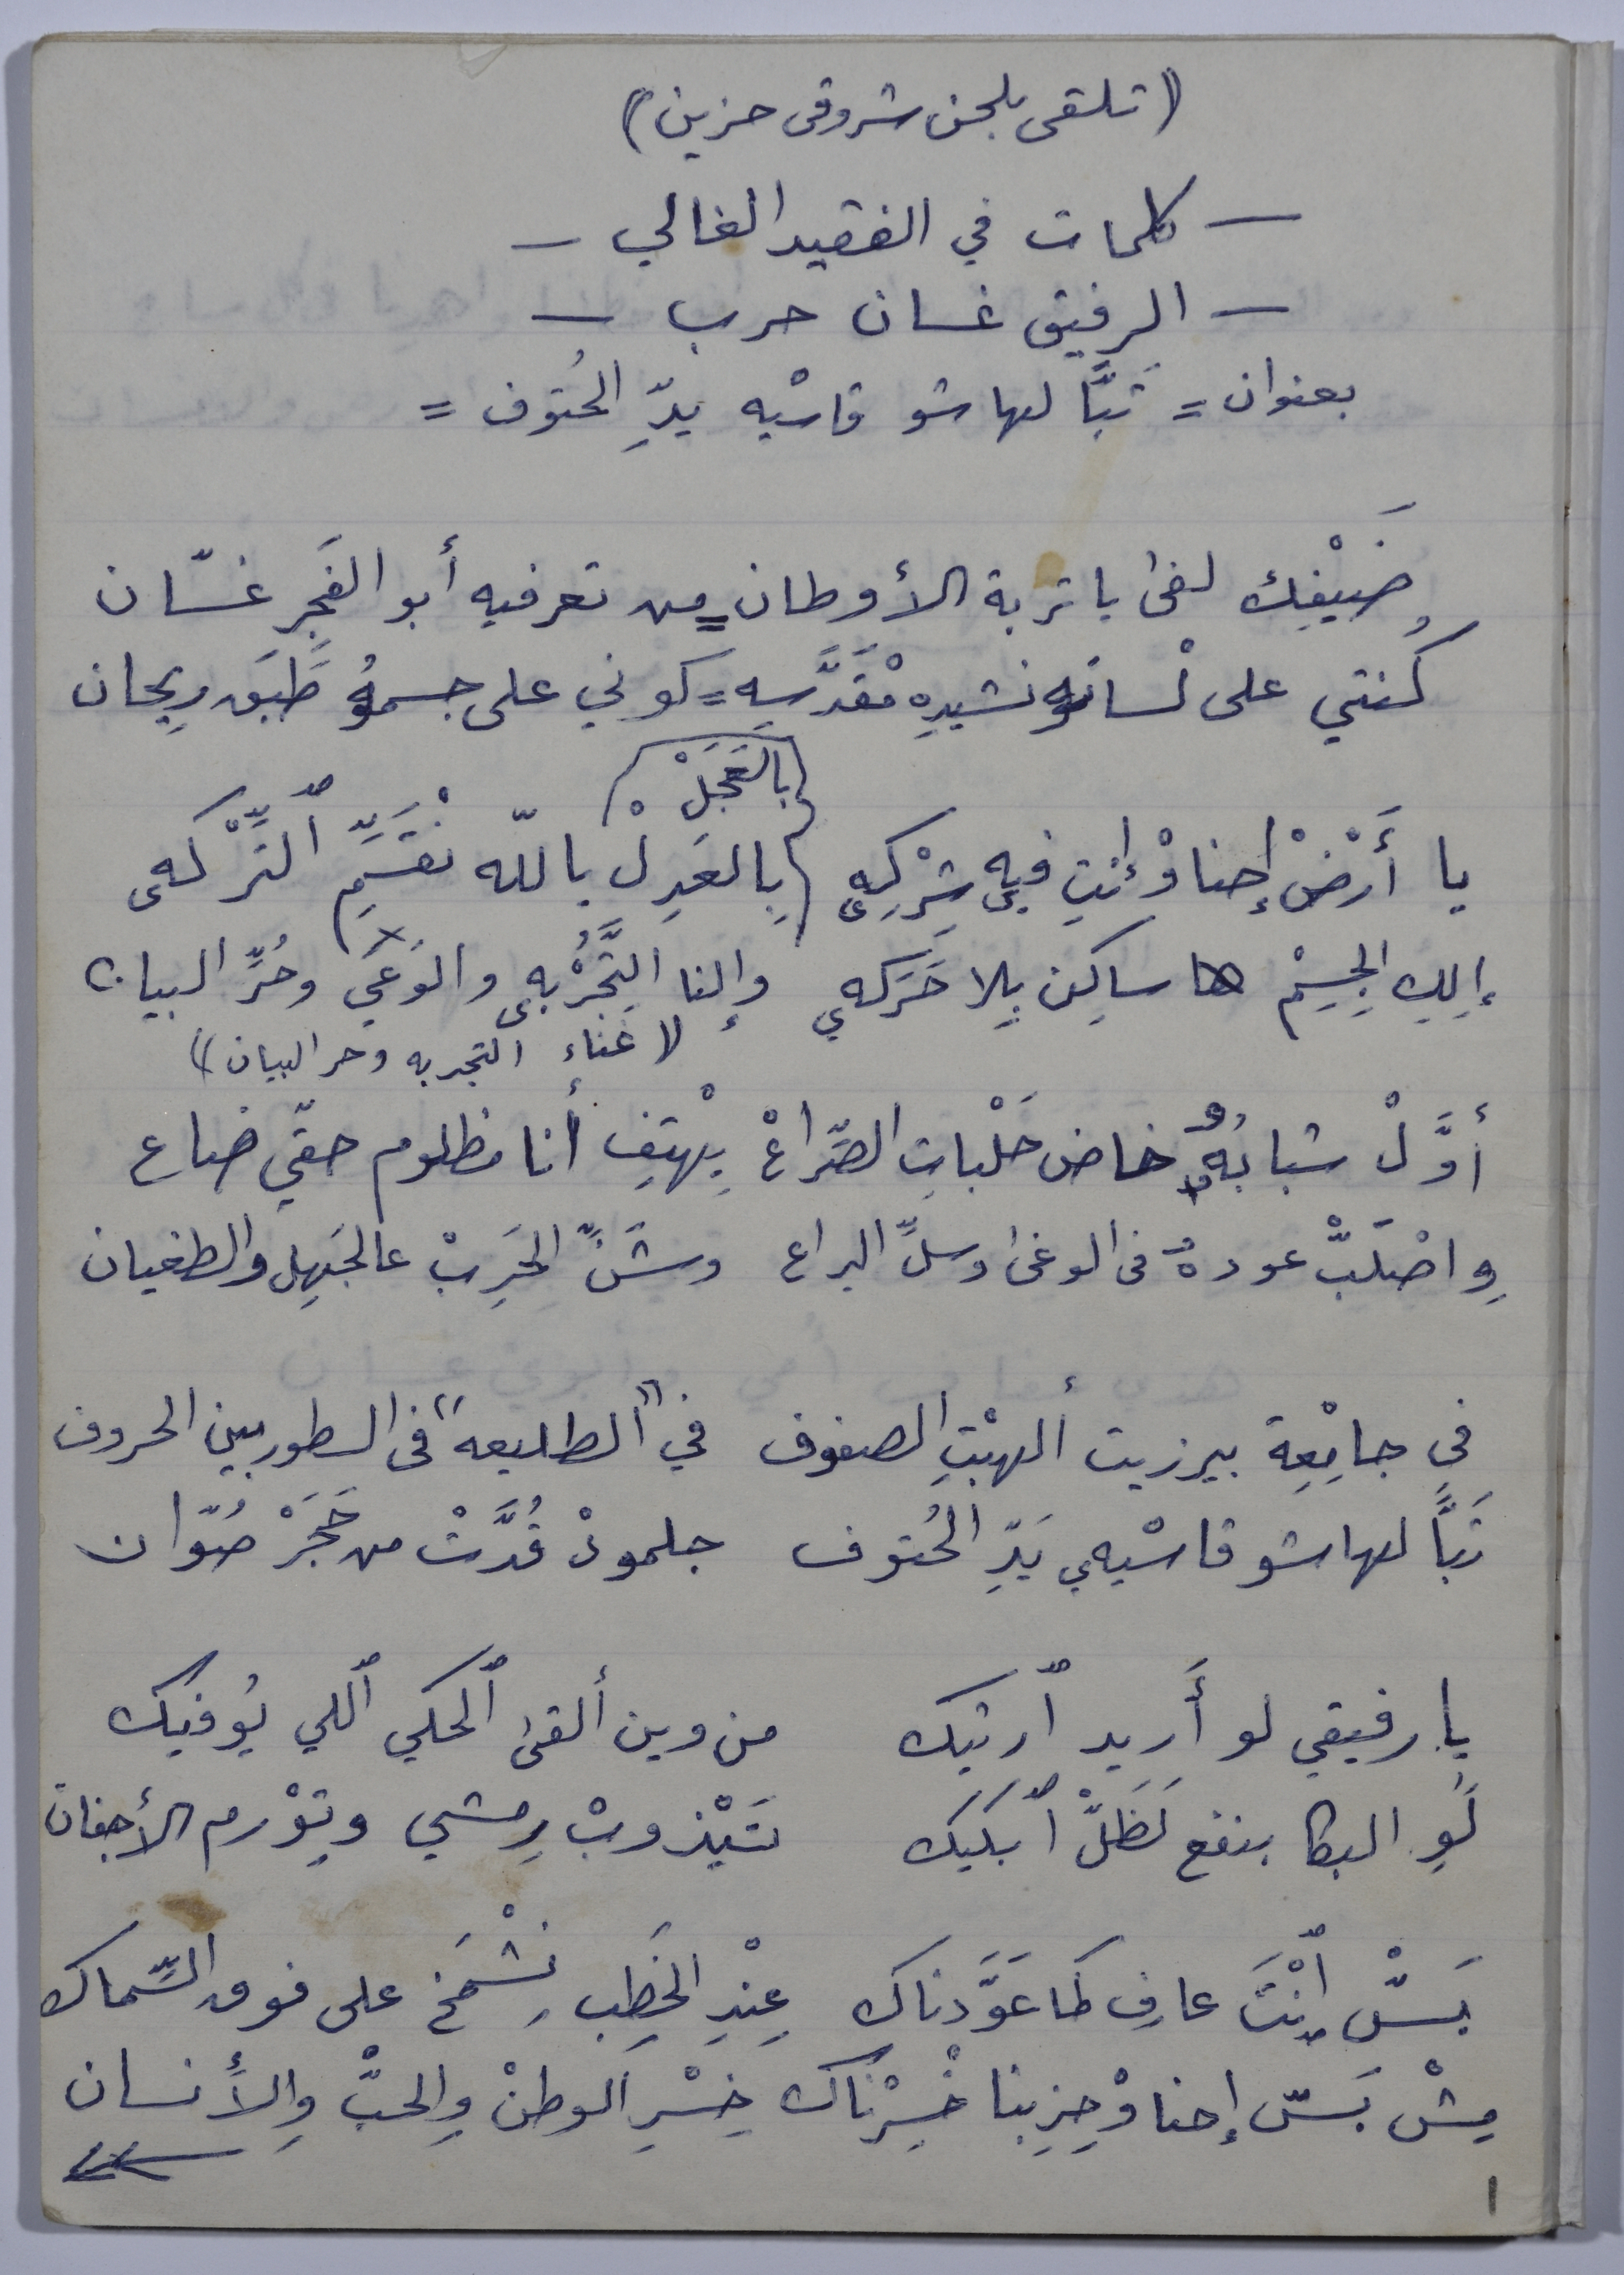 (تلقى بلحن شروقي حزين)
— كلمات في الفقيد الغالي —
— الرفيق غسان حرب —
بعنوان = تَبًّا لها شو قاسْيه يدِّ الحُتوف =
ضَيْفِك لفى يا تربة الأوطان = مين تعرفيه أبو الفَجِر غسّان
كُنتي على لْسانه نشيدِه مْقَدَّسِه = كوني على جسمهُ طَبَق ريحان
(بالعَجَلْ)
يا أَرْضْ إحنا وْإنتِ فيه شِرْكِه (بِالعَدِلْ) باللّه نْقَسِّم ٱلتَّرْكه
إلِكِ الجِسِمْ ها ساكِن بِلا حَرَكه وإلنا التَّجْرُبه والوَعَي وحُرِّ البيان
لا غناء التجربه وحر البيان)
أوَّلْ شبابُهْ خاض حَلْباتِ الصّراعْ بِهْتِف أنا مظلوم حقّي ضاع
وِاصْتَلَبّْ عودهُ في الوغى وسلِّ اليراع وشَنِّ الحَرِبْ عالجَهِل والطغيان
في جامِعِة بيرزيت ألهبْتِ الصفوف في "الطليعه" في السطور بين الحروف
تَبًّا لها شو قاسْيه يَدِّ الحُتوف جلمودْ قُدَّتْ من حَجَرْ صُوّان
يا رفيقي لو أَريد ٱرثيك من وين ألقى ٱلحكي ٱللي يُوفيك
لَوِ البكا بنفع لَظَلّْ ٱبكيك تَيْذوبْ رِمشي وتِوْرم الأجفان
بَسّْ ٱنْتَ عارِف كَما عَوَّدناك عِنْدِ الخَطِب نشْمَخ على فوق السِّماك
مِشْ بَسّ إحنا وْحِزِبنا خْسِرْناك خِسْرِ الوطنْ وِالحبّْ وِالأنسان
١